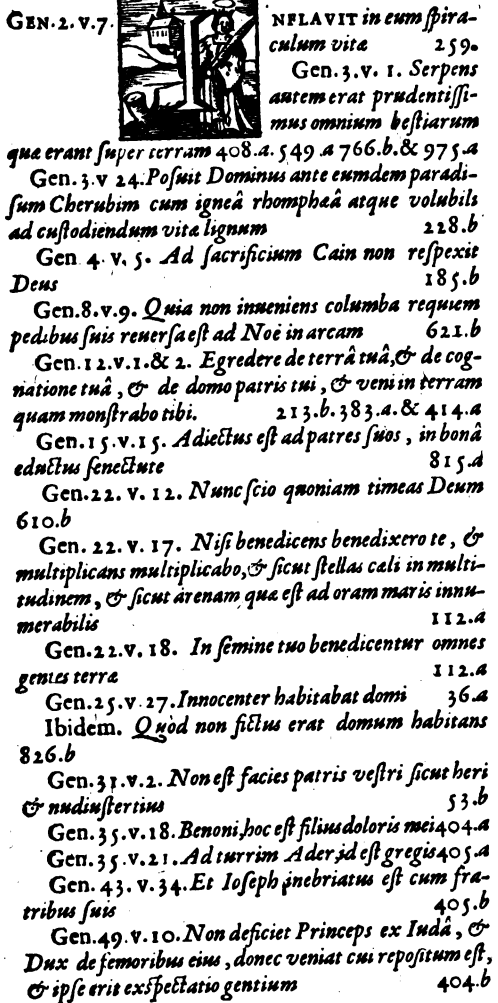 GEN. 2. v. 7. INFLAVIT in eum ſpira-
culum vitæ 259.
Gen. 3. v. 1. Serpens
autem erat prudentiſſi-
mus omnium beſtiarum
quæ erant ſuper terram 408.a. 549.a 766.b. & 975.a
Gen. 3. v 24. Poſuit Dominus ante eumdem paradi-
ſum Cherubim cum igneâ rhomphæâ atque volubili
ad cuſtodiendum vitæ lignum 228.b
Gen. 4. v. 5. Ad ſacrificium Cain non reſpexit
Deus 185.b
Gen. 8. v. 9. Quia non inueniens columba requiem
pedibus ſuis reuerſa eſt ad Noë in arcam 621.b
Gen. 12. v. 1. & 2. Egredere de terrâ tuâ, & de cog-
natione tuâ, & de domo patris tui, & veni in terram
quam monſtrabo tibi. 213.b. 383.a. & 414.a
Gen. 15. v. 15. Adiectus eſt ad patres ſuos, in bonâ
eductus ſenectute 815.a
Gen. 22. v. 12. Nunc ſcio quoniam timeas Deum
610.b
Gen. 22. v. 17. Niſi benedicens benedixero te, &
multiplicans multiplicabo, & ſicut ſtellas cæli in multi-
tudinem, & ſicut arenam quæ eſt ad oram maris innu-
merabilis 112.a
Gen. 22. v. 18. In ſemine tuo benedicentur omnes
gentes terræ 112.a
Gen. 25. v. 27. Innocenter habitabat domi 36.a
Ibidem. Quòd non fictus erat domum habitans
826.b
Gen. 31. v. 2. Non eſt facies patris veſtri ſicut heri
& nudiuſtertius 53.b
Gen. 35. v. 18. Benoni, hoc eſt filius doloris mei 404.a
Gen. 35. v. 21. Ad turrim Ader, id eſt gregis 405.a
Gen. 43. v. 34. Et Ioſeph inebriatus eſt cum fra-
tribus ſuis 405.b
Gen. 49. v. 10. Non deficiet Princeps ex Iudâ, &
Dux de femoribus eius, donec veniat cui repoſitum eſt,
& ipſe erit exſpectatio gentium 404.b